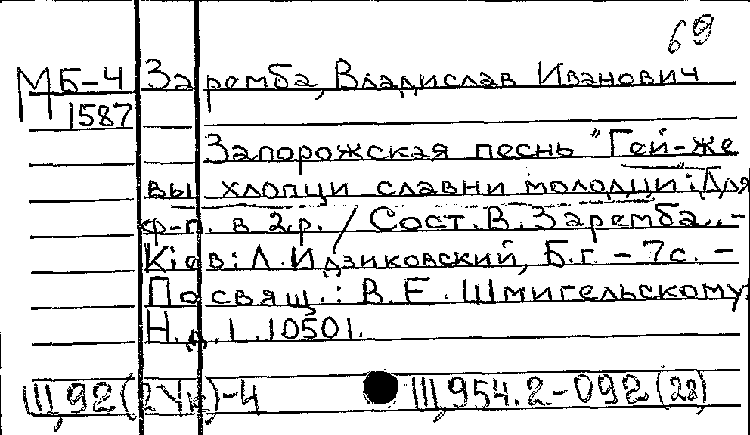 69
МБ-4 Заремба, Владислав Иванович
1587
Запорожская песнь "Гей-же
вы хлопци славни молодци": Для
ф-п. в 2 р. / Сост. В. Заремба. -
Кiев: Л. Идзиковский, Б.г. - 7 с. -
Посвящ.: В. Е. Шмигельскому.
Н.д. L.10501.
Ш,92(2Ук)-4 Ш,954.2-092(28)